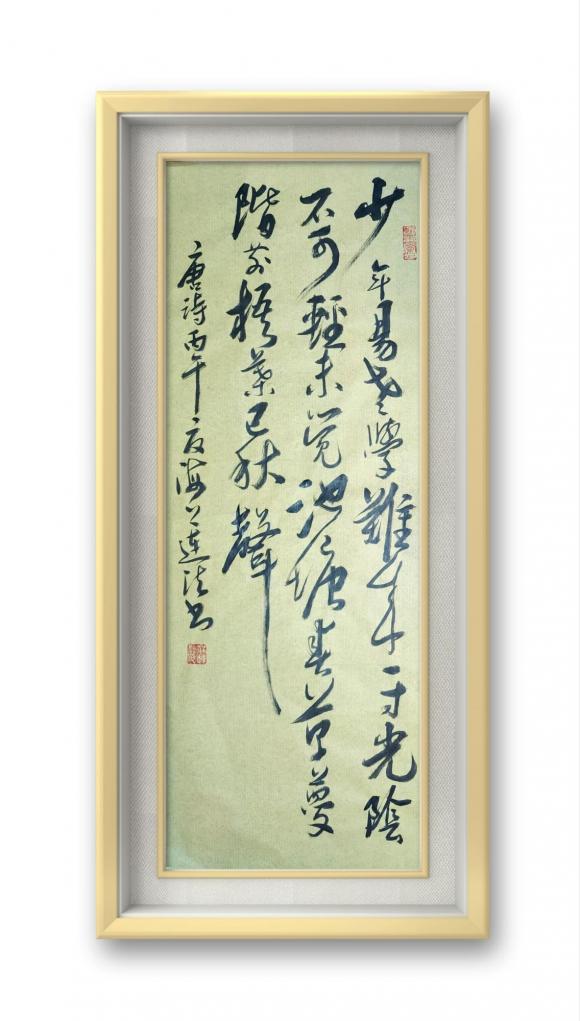 少年易老學難成一寸光陰
不可輕未覺池塘春草夢
階前梧葉已秋聲
唐詩丙午夏海上連法书